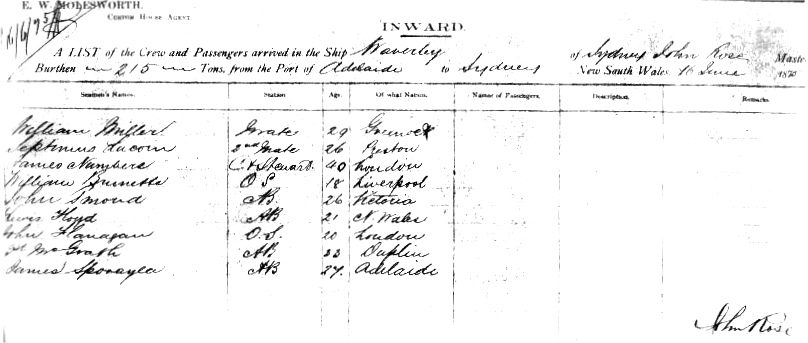 E. W. MOLESWORTH.
CUSTOM HOUSE AGENT.
INWARD.
A LIST of the Crew and Passengers arrived in the Ship Waverley of Sydney John Rose Master
Burthen 215 Tons, from the Port of Adelaide to Sydney New South Wales 16 June 187
Seamen's Names. Station Age. Of what Nation. Names of Passengers. Description. Remarks.
William Miller Mate 29
Septimus 2nd Mate 26 Preston
James C & Steward 40 London
William O S 18 Liverpool
John AB 26 Victoria
Lewis Floyd AB 21 N. Wales
John Flanagan O.S. 20 London
McGrath AB Dublin
James AB 27 Adelaide
John Rose